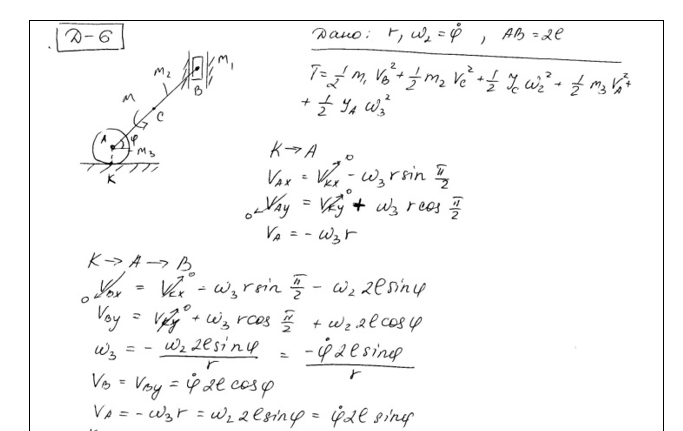 Д-6
Дано: r, ω₂=φ̇, AB=2l
T=½ m₁ V_B² + ½ m₂ V_C² + ½ J_C ω₂² + ½ m₃ V_A² +
+ ½ J_A ω₃²
M₁
M₂
B
M
C
A
φ
M₃
K
K→A
V_Ax = V_Kx⁰ - ω₃ r sin π/2
0 V_Ay = V_Ky⁰ + ω₃ r cos π/2
V_A = - ω₃ r
K → A → B
0 V_Bx = V_Kx⁰ - ω₃ r sin π/2 - ω₂ 2l sin φ
V_By = V_Ky⁰ + ω₃ r cos π/2 + ω₂ 2l cos φ
ω₃ = - ω₂ 2l sin φ / r = -φ̇ 2l sin φ / r
V_B = V_By = φ̇ 2l cos φ
V_A = - ω₃ r = ω₂ 2l sin φ = φ̇ 2l sin φ